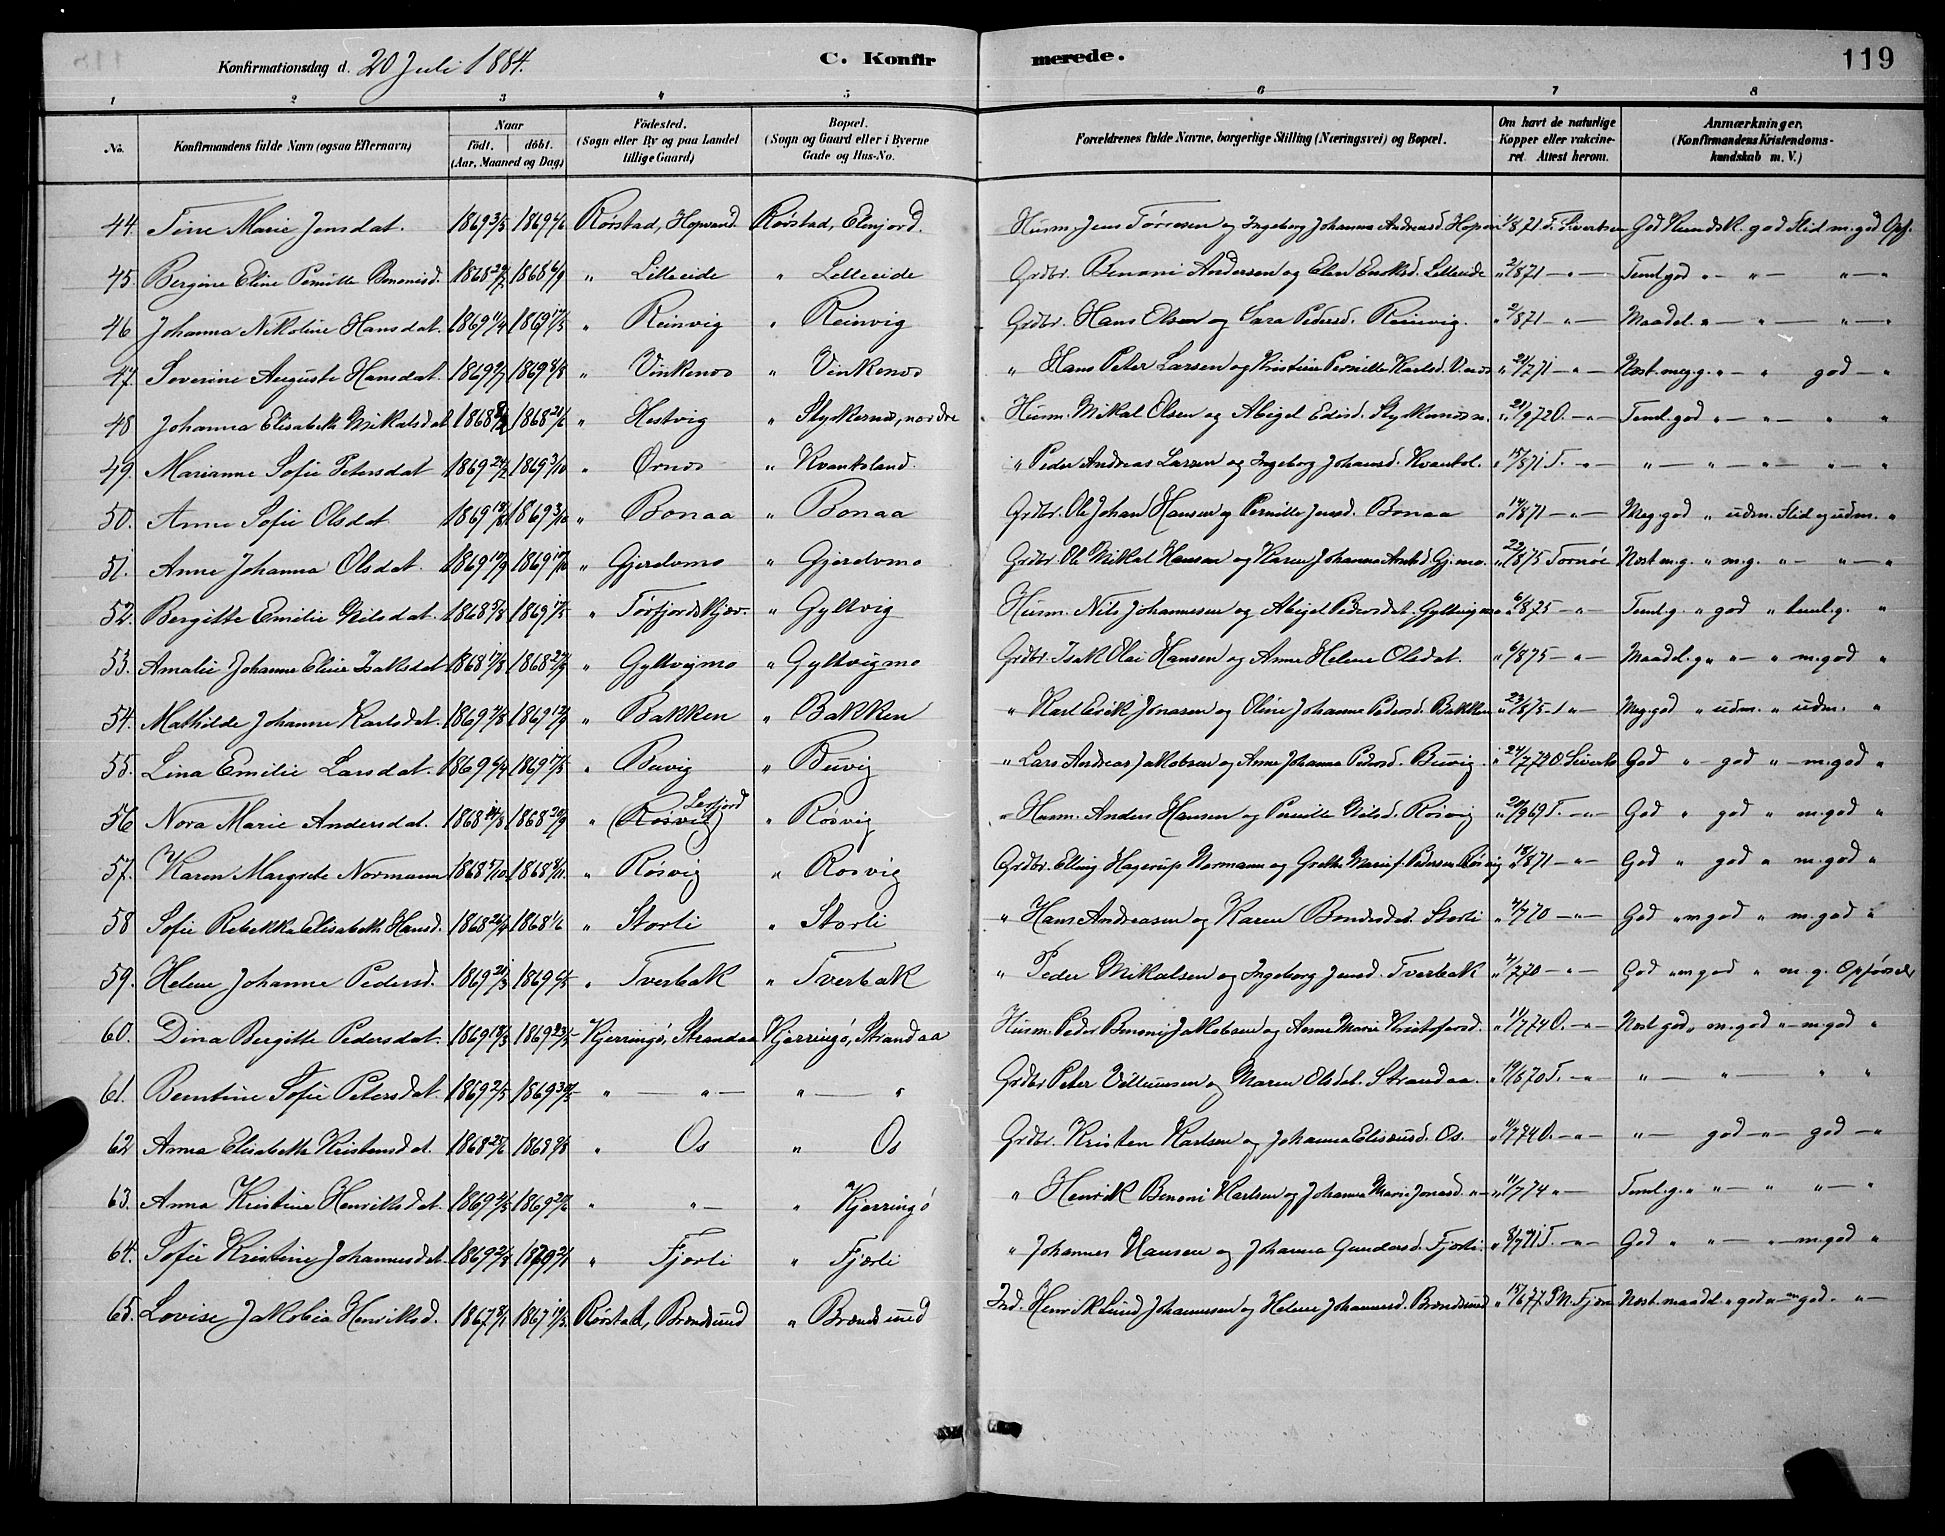 119
Konfirmationsdag d. 20 Juli 1884.
C. Konfirmerede.
1 2 3 4 5 6 7 8
No. Konfirmandens fulde Navn (ogsaa Efternavn) Naar født. døbt. (Aar, Maaned og Dag) Fødested. (Sogn eller By og paa Landet tillige Gaard) Bopæl. (Sogn og Gaard eller i Byerne Gade og Hus-No. Forældrenes fulde Navne, borgerlige Stilling (Næringsvei) og Bopæl. Om havt de naturlige Kopper eller vakcineret. Attest herom. Anmærkninger. (Konfirmandens Kristendomskundskab m. V.)
44. Tine Marie Jensdat. 1869 3/5 1869 6/6 Rørstad, Hopvand. Rørstad, Elvfjord. Husm. Jens Tørresen og Ingeborg Johanna Andreasd. 1/8 71 T. Sivertsen God Kundsk. god Flid m. god Opf.
45. Bergine Eline Pernille Benonisd. 1868 1868 6/9 " Lilleeide " Lilleeide Grdbr. Benoni Andersen og Elen Enoksd. Lilleeide " 2/8 71 — " — Teml. god " — " — " — "
46 Johanna Nikoline Hansdat. 1869 11/4 1869 17/5 " Reinvig " Reinvig Grdbr. Hans Olsen og Sara Pedersd. Reinvig. " 2/8 71 — " — Maadel. " — " — " — "
47. Severine Auguste Hansdat. 1869 1869 8/8 " Vinkenes " Vinkenes " Hans Peter Larsen og Kristine Pernille Karlsd. " 21/7 71 — " — Næst. meg. g. " — " god — "
48 Johanna Elisabeth Mikalsdat 1868 1868 21/6 " Hestvig " Stykkesnæs, nordre Husm. Mikal Olsen og Abigel Edisd. " 21/9 72 O. — " — Teml. god " — " — " "
49. Marianne Sofie Petersdat 1869 24/2 1869 3/10 " Ørnes " Kvanksland. " Peder Andreas Larsen og Ingeborg Johansd. " 15/8 71 T. " — " — " — " — " — "
50. Anne Sofie Olsdat 1869 18/8 1869 3/10 " Bonaa " Bonaa Grdbr. Ole Johan Hansen og Pernille Jensd. Bonaa " 14/8 71 — " — Meg. god " udm. Flid og udm. "
51. Anne Johanna Olsdat. 1869 10/9 1869 17/10 " Gjerdvmo " Gjerdvmo Grdbr. Ole Mikal Hansen og Karen Johanna " 22/8 75 Tornøe Næst m. g. " m. g. " — " — "
52. Bergitte Emilie Nilsdat. 1868 5/8 1869 17/5 " Tørfjordskjær. " Gyltvig Husm. Nils Johannesen og Abigel Pedersdat. " 6/8 75 — " — Teml. g. " god " teml. g. "
53. Amalie Johanne Eline Isaksdat 1868 17/8 1868 27/9 " Gyltvigmo " Gyltvigmo Grdbr. Isak Olai Hansen og Anne Helene Olsdat. " 6/8 75 — " — Maadel. g. " — " m. god "
54. Mathilde Johanne Karlsdat. 1869 7/8 1869 12/9 " Bakken " Bakken " Karl Erik Jonasen og Oline Johanne Pedersd. Bakken " 23/8 75 — " — Meg. god " udm. " udm. "
55. Lina Emilie Larsdat. 1869 6/4 1869 17/5 " Buvig " Buvig " Lars Andreas Jakobsen og Anne Johanna Pedersd. Buvig. " 24/7 72 O. Siverts God " — god " — m. god "
56 Nora Marie Andersdat. 1868 14/8 1868 20/9 " (Røsvig) Leifjord " Røsvig " Husm. Anders Hansen og Pernille Nilsd. Røsvig " 20/9 69 T. — " — God " god " m. god "
57. Karen Margrete Normann 1868 5/10 1868 8/11. " Røsvig " Røsvig Grdbr. Elling Hagerup Normann og Grethe Marie f. Pedersen Røsvig " 18/8 71 — " — God " god " m. god "
58 Sofie Rebekka Elisabeth Hansd. 1868 26/4 1868 1/6 " Storli " Storli " Hans Andreasen og Karen Storli " 4/7 70 — " — God " m god " m. god "
59. Helene Johanne Pedersd. 1869 21/3 1869 6/5 " Tverbak " Tverbak " Peder Mikalsen og Ingeborg Jensd. Tverbak " 4/7 70 — " — God " m god " m. g. Opførsel
60. Dina Bergitte Pedersdat. 1869 18/3 1869 23/5 Kjerringø, Strandaa Kjerringø, Strandaa Husm. Peder Benoni Jakobsen og Anne Marie Kristofersd. " 11/7 74 O. — " — Næst god " m. god " — m. god "
61. Berntine Sofie Petersdat. 1869 2/5 1869 30/5 " — " — " — " Grdbr Peter Villumsen og Maren Olsdat. Strandaa. " 19/8 70 T. — " — " — " — " "
62 Anna Elisabeth Kristensdat. 1868 25/6 1868 9/8 " Os " Os Grdbr. Kristen Karlsen og Johanna Elisæusd. Os. " 11/7 74 O. — " — " — god — " — god — "
63. Anna Kristine Henriksdat. 1869 2/5 1869 27/6 " " — " Kjerringø " Henrik Benoni Karlsen og Johanna Marie Jonasd. " — " 11/7 74 " — Teml. g. " " — " " — "
64. Sofie Kristine Johannesdat. 1869 2/8 1869 " Fjærli " Fjærli " Johannes Hansen og Johanna Gundersd. Fjærli. " 8/7 71 T. — " — God " " — " — m. god "
65. Lovise Jakobia Henriksd. 1867 8/1 1867 Rørstad, Brændsund " Brændsund Ind. Henrik Lund Johannesen og Helene Johannesd. Brændsund " 15/6 77 P. N. Fjære Næst. maadel " god " — m god. " — "